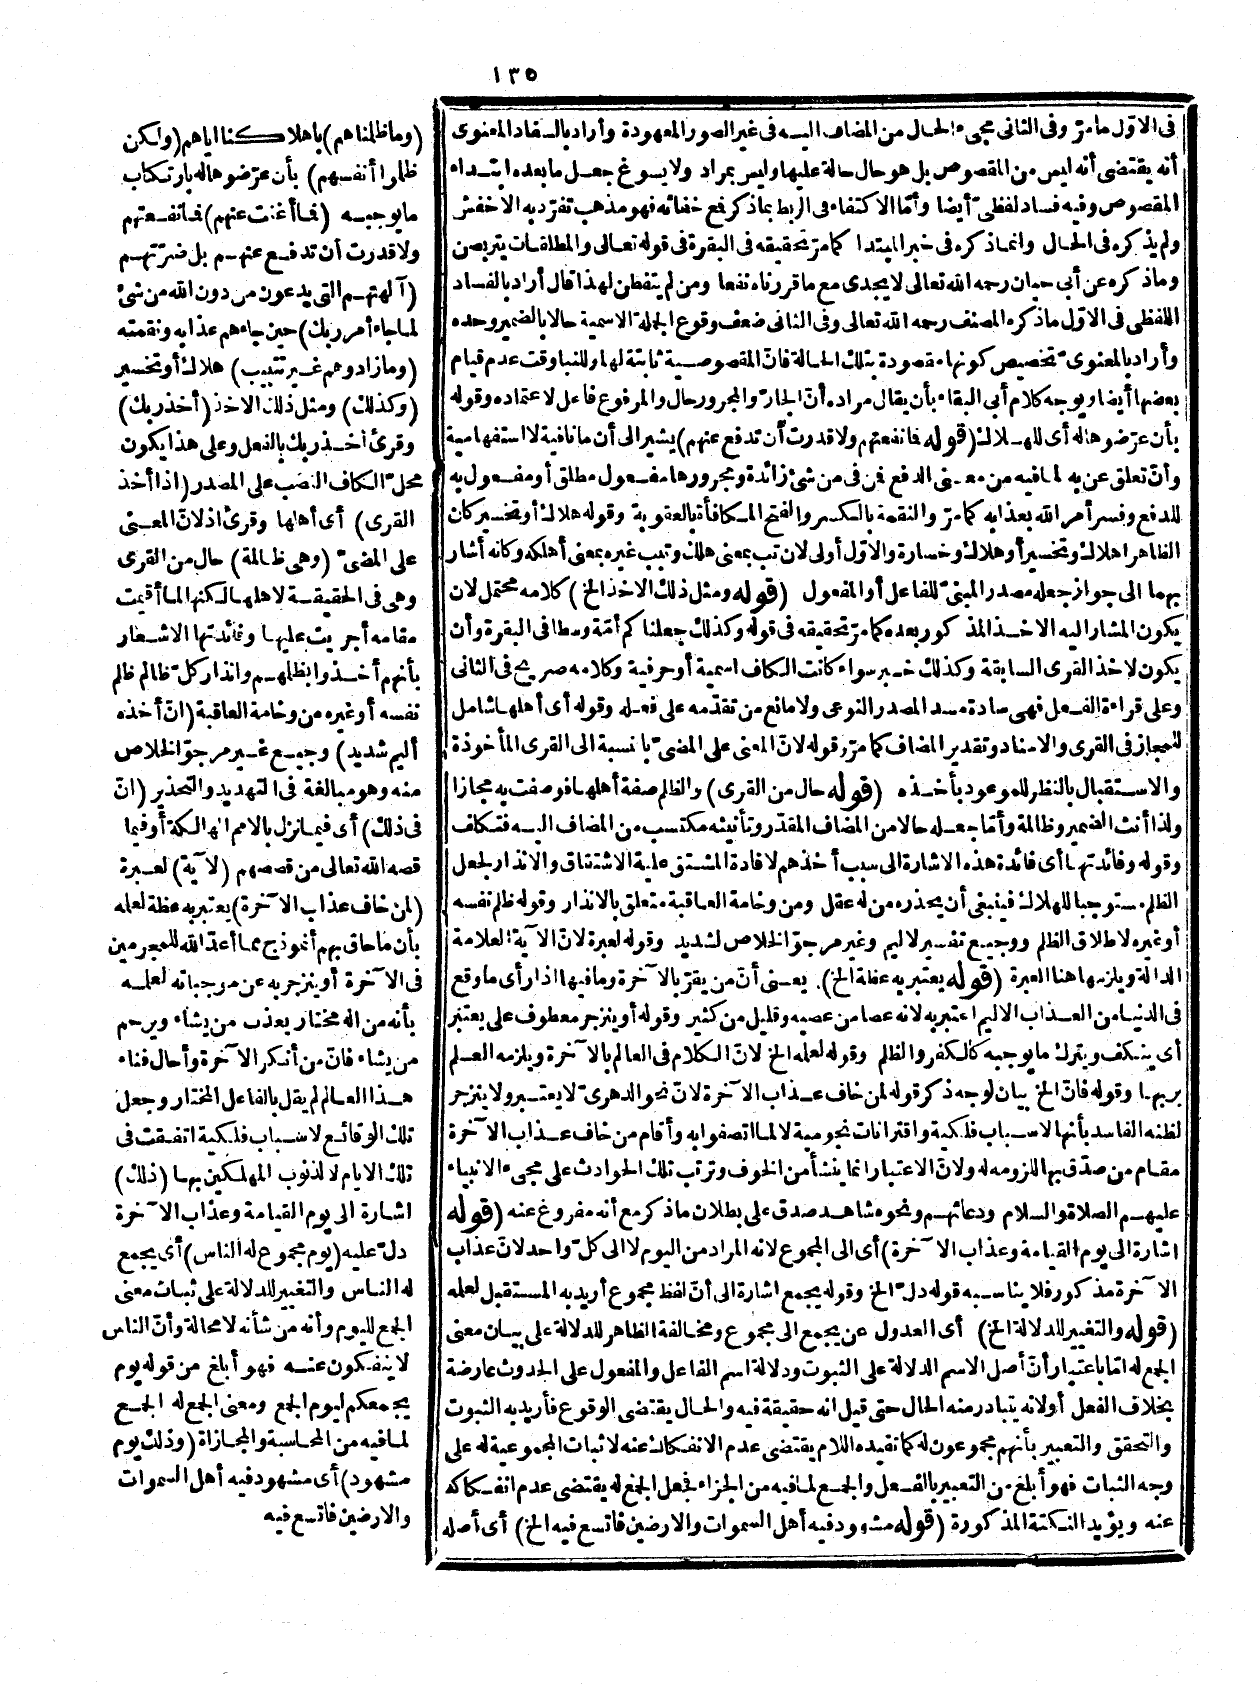 ١٣٥
فى الاوّل مامرّ وفى الثانى مجىء الحال من المضاف اليه فى غير الصور المعهودة وأراد بالفساد المعنوى
أنه يقتضى أنه ليس من المقصوص بل هو حال حالة عليها وليس بمراد ولا يسوغ جعل ما بعده ابتداء
المقصوص وفيه فساد لفظىّ أيضا وأمّا الاكتفاء فى الربط بماذكر فمع خفائه فهو مذهب تفرّد به الاخفش
ولم يذكره فى الحال وانما ذكره فى خبر المبتدا كما مرّ تحقيقه فى البقرة فى قوله تعالى والمطلقات يتربصن
وما ذكره عن أبى حيان رحمه الله تعالى لا يجدى مع ما قررناه نفعا ومن لم يتفطن لهذا قال أراد بالفساد
اللفظى فى الاوّل ماذكره المصنف رحمه الله تعالى وفى الثانى ضعف وقوع الجملة الاسمية حالا بالضمير وحده
وأراد بالمعنوىّ تخصيص كونها مقصودة بتلك الحالة فانّ المقصوصية ثابتة لها وللنبا وقت عدم قيام
بعضها أيضا ويوجه كلام أبى البقاء بأن يقال مراده أنّ الجارّ والمجرور حال والمرفوع فاعل لاعتماده وقوله
بأن عرّضوها له أى للهلاك (قوله فما نفعتهم ولا قدرت أن تدفع عنهم) يشير الى أن ما نافية لا استفهامية
وأنّ تعلق عن به لما فيه من معنى الدفع فمن فى من شئ زائدة ومجرورها مفعول مطلق أو مفعول به
للدفع وفسر أمر الله بعذابه كما مرّ والنقمة بالكسر والفتح المكافأة بالعقوبة وقوله هلاك أو تخسير كان
الظاهر اهلاك وتخسير أو هلاك وخسارة والاوّل أولى لان تب بمعنى هلك وتبب غيره بمعنى أهلكه وكأنه أشار
بهما الى جواز جعله مصدر المبنىّ للفاعل أو المفعول (قوله ومثل ذلك الاخذ الخ) كلامه محتمل لان
يكون المشار اليه الاخذ المذكور بعده كما مرّ تحقيقه فى قوله وكذلك جعلناكم أمّة وسطا فى البقرة وأن
يكون لاخذ القرى السابقة وكذلك خبر سواء كانت الكاف اسمية أو حرفية وكلامه صريح فى الثانى
وعلى قراءة الفعل فهى سادة مسد المصدر النوعى ولا مانع من تقدّمه على فعله وقوله أى أهلها شامل
للمجاز فى القرى والاسناد وتقدير المضاف كما مرّ وقوله لانّ المعنى على المضىّ بالنسبة الى القرى المأخوذة
والاستقبال بالنظر للموعود بأخذه (قوله حال من القرى) والظلم صفة أهلها فوصفت به مجازا
ولذا أنث الضمير وظالمة وأمّا جعله حالا من المضاف المقدّر وتأنيثه مكتسب من المضاف اليه فتكلف
وقوله وفائدتها أى فائدة هذه الاشارة الى سبب أخذهم لافادة المشتق علية الاشتقاق والانذار لجعل
الظلم مستوجبا للهلاك فينبغى أن يحذره من له عقل ومن وخامة العاقبة متعلق بالانذار وقوله ظلم نفسه
أو غيره لاطلاق الظلم ووجيع تفسير لاليم وغير مرجوّ الخلاص لشديد وقوله لعبرة لانّ الآية العلامة
الدالة ويلزمها هنا العبرة (قوله يعتبر به عظة الخ) يعنى أنّ من يقرّ بالآخرة وما فيها اذا رأى ما وقع
فى الدنيا من العذاب الاليم اعتبر به لانه عصا من عصيه وقليل من كثير وقوله أو ينزجر معطوف على يعتبر
أى ينكف ويترك ما يوجبه كالكفر والظلم وقوله لعلمه الخ لانّ الكلام فى العالم بالآخرة ويلزمه العلم
بربها وقوله فانّ الخ بيان لوجه ذكر قوله لمن خاف عذاب الآخرة لانّ نحو الدهرىّ لا يعتبر ولا ينزجر
لظنه الفاسد بأنها لاسباب فلكية واقترانات نجومية لا لما اتصفوا به وأقام من خاف عذاب الآخرة
مقام من صدّق بها للزومه له ولانّ الاعتبار انما ينشأ من الخوف وترتب تلك الحوادث على مجىء الانبياء
عليهم الصلاة والسلام ودعائهم ونحوه شاهد صدق على بطلان ماذكر مع أنه مفروغ عنه (قوله
اشارة الى يوم القيامة وعذاب الآخرة) أى الى المجموع لانه المراد من اليوم لا الى كلّ واحد لانّ عذاب
الآخرة مذكور فلا يناسبه قوله دلّ الخ وقوله يجمع اشارة الى أنّ لفظ مجموع أريد به المستقبل لعمله
(قوله والتغيير للدلالة الخ) أى العدول عن يجمع الى مجموع ومخالفة الظاهر للدلالة على بيان معنى
الجمع له امّا باعتبار أنّ أصل الاسم الدلالة على الثبوت ودلالة اسم الفاعل والمفعول على الحدوث عارضة
بخلاف الفعل أو لانه يتبادر منه الحال حتى قيل انه حقيقة فيه والحال يقتضى الوقوع فأريد به الثبوت
والتحقق والتعبير بأنهم مجموعون له كما تفيده اللام يقتضى عدم الانفكاك عنه لاثبات المجموعية له على
وجه الثبات فهو أبلغ من التعبير بالفعل والجمع لما فيه من الجزاء فجعل الجمع له يقتضى عدم انفكاكه
عنه ويؤيد النكتة المذكورة (قوله مشهود فيه أهل السموات والارضين فاتسع فيه الخ) أى أصله
(وما ظلمناهم) باهلاكنا اياهم (ولكن
ظلموا أنفسهم) بأن عرّضوها له بارتكاب
ما يوجبه (فما أغنت عنهم) فما نفعتهم
ولا قدرت أن تدفع عنهم بل ضرّتهم
(آلهتهم التى يدعون من دون الله من شئ
لما جاء أمر ربك) حين جاءهم عذابه ونقمته
(وما زادوهم غير تتبيب) هلاك أو تخسير
(وكذلك) ومثل ذلك الاخذ (أخذ ربك)
وقرئ أخذ ربك بالفعل وعلى هذا يكون
محلّ الكاف النصب على المصدر (اذا أخذ
القرى) أى أهلها وقرئ اذ لانّ المعنى
على المضىّ (وهى ظالمة) حال من القرى
وهى فى الحقيقة لاهلها لكنها لما أقيمت
مقامه أجريت عليها وفائدتها الاشعار
بأنهم أخذوا بظلمهم وانذار كلّ ظالم ظلم
نفسه أو غيره من وخامة العاقبة (انّ أخذه
أليم شديد) وجيع غير مرجوّ الخلاص
منه وهو مبالغة فى التهديد والتحذير (انّ
فى ذلك) أى فيما نزل بالامم الهالكة أو فيما
قصه الله تعالى من قصصهم (لآية) لعبرة
(لمن خاف عذاب الآخرة) يعتبر به عظة لعلمه
بأن ما حاق بهم أنموذج مما أعدّ الله للمجرمين
فى الآخرة أو ينزجر به عن موجباته لعلمه
بأنه من اله مختار يعذب من يشاء ويرحم
من يشاء فانّ من أنكر الآخرة وأحال فناء
هذا العالم لم يقل بالفاعل المختار وجعل
تلك الوقائع لاسباب فلكية اتفقت فى
تلك الايام لا لذنوب المهلكين بها (ذلك)
اشارة الى يوم القيامة وعذاب الآخرة
دلّ عليه (يوم مجموع له الناس) أى يجمع
له الناس والتغيير للدلالة على ثبات معنى
الجمع لليوم وأنه من شأنه لا محالة وأنّ الناس
لا ينفكون عنه فهو أبلغ من قوله يوم
يجمعكم ليوم الجمع ومعنى الجمع له الجمع
لما فيه من المحاسبة والمجازاة (وذلك يوم
مشهود) أى مشهود فيه أهل السموات
والارضين فاتسع فيه